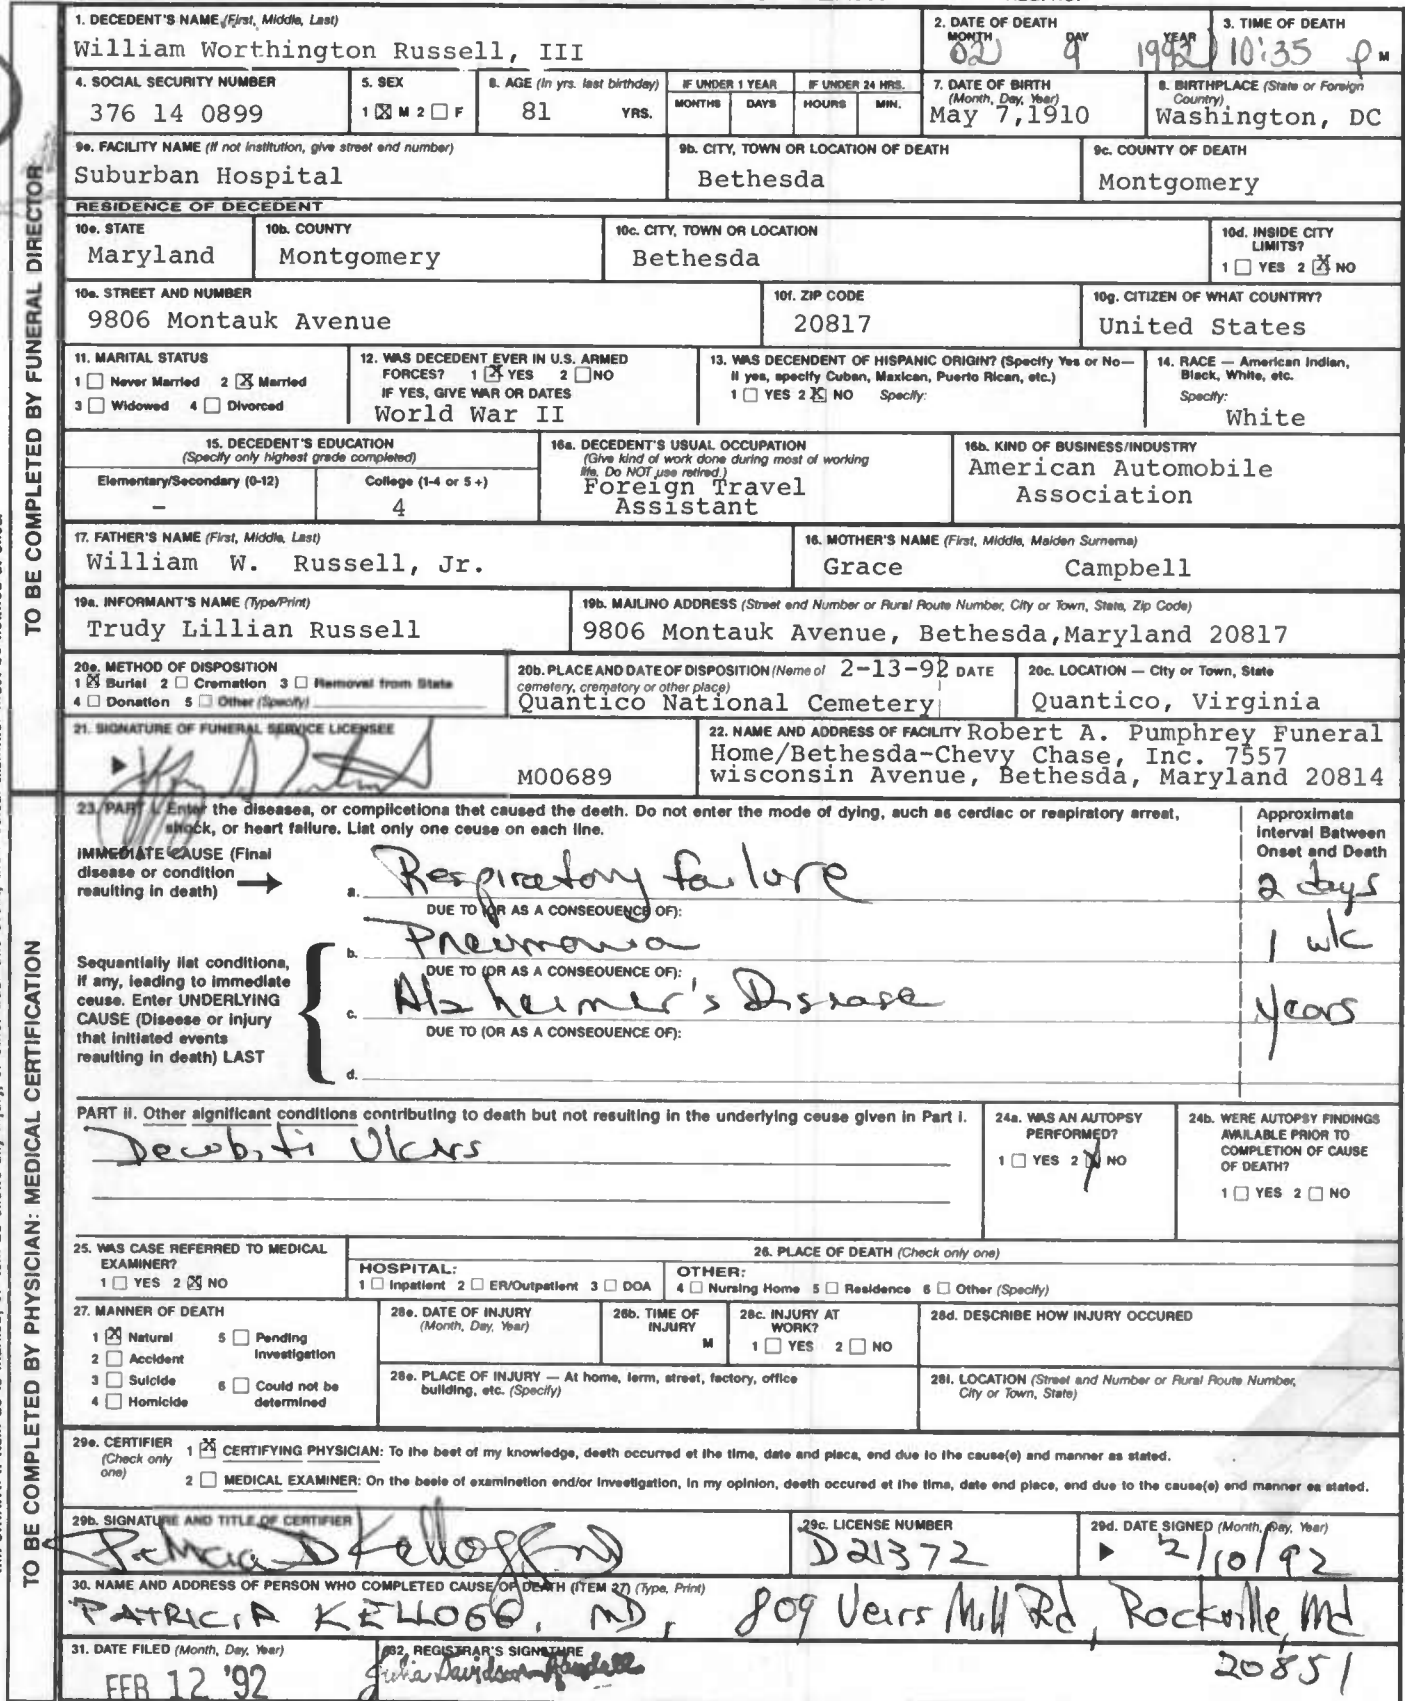 1. DECEDENT'S NAME (First, Middle, Last)
William Worthington Russell, III
2. DATE OF DEATH
MONTH DAY YEAR
02 9 1992
3. TIME OF DEATH
10:35 P M
4. SOCIAL SECURITY NUMBER
376 14 0899
5. SEX
1 ☒ M 2 ☐ F
6. AGE (In yrs. last birthday)
81 YRS.
IF UNDER 1 YEAR
MONTHS DAYS
IF UNDER 24 HRS.
HOURS MIN.
7. DATE OF BIRTH
(Month, Day, Year)
May 7,1910
8. BIRTHPLACE (State or Foreign
Country)
Washington, DC
9a. FACILITY NAME (If not institution, give street and number)
Suburban Hospital
9b. CITY, TOWN OR LOCATION OF DEATH
Bethesda
9c. COUNTY OF DEATH
Montgomery
RESIDENCE OF DECEDENT
10a. STATE
Maryland
10b. COUNTY
Montgomery
10c. CITY, TOWN OR LOCATION
Bethesda
10d. INSIDE CITY
LIMITS?
1 ☐ YES 2 ☒ NO
10e. STREET AND NUMBER
9806 Montauk Avenue
10f. ZIP CODE
20817
10g. CITIZEN OF WHAT COUNTRY?
United States
11. MARITAL STATUS
1 ☐ Never Married 2 ☒ Married
3 ☐ Widowed 4 ☐ Divorced
12. WAS DECEDENT EVER IN U.S. ARMED
FORCES? 1 ☒ YES 2 ☐ NO
IF YES, GIVE WAR OR DATES
World War II
13. WAS DECENDENT OF HISPANIC ORIGIN? (Specify Yes or No—
If yes, specify Cuban, Maxican, Puerto Rican, etc.)
1 ☐ YES 2 ☒ NO Specify:
14. RACE — American Indian,
Black, White, etc.
Specify:
White
15. DECEDENT'S EDUCATION
(Specify only highest grade completed)
Elementary/Secondary (0-12)
–
College (1-4 or 5+)
4
16a. DECEDENT'S USUAL OCCUPATION
(Give kind of work done during most of working
life. Do NOT use retired.)
Foreign Travel
Assistant
16b. KIND OF BUSINESS/INDUSTRY
American Automobile
Association
17. FATHER'S NAME (First, Middle, Last)
William W. Russell, Jr.
16. MOTHER'S NAME (First, Middle, Maiden Surname)
Grace Campbell
19a. INFORMANT'S NAME (Type/Print)
Trudy Lillian Russell
19b. MAILING ADDRESS (Street and Number or Rural Route Number, City or Town, State, Zip Code)
9806 Montauk Avenue, Bethesda,Maryland 20817
20a. METHOD OF DISPOSITION
1 ☒ Burial 2 ☐ Cremation 3 ☐ Removal from State
4 ☐ Donation 5 ☐ Other (Specify)
20b. PLACE AND DATE OF DISPOSITION (Name of 2-13-92 DATE
cemetery, crematory or other place)
Quantico National Cemetery
20c. LOCATION — City or Town, State
Quantico, Virginia
21. SIGNATURE OF FUNERAL SERVICE LICENSEE
M00689
22. NAME AND ADDRESS OF FACILITY Robert A. Pumphrey Funeral
Home/Bethesda-Chevy Chase, Inc. 7557
wisconsin Avenue, Bethesda, Maryland 20814
23. PART I. Enter the diseases, or complications that caused the death. Do not enter the mode of dying, such as cardiac or respiratory arrest,
shock, or heart failure. List only one cause on each line.
Approximate
Interval Between
Onset and Death
IMMEDIATE CAUSE (Final
disease or condition
resulting in death) →
a. Respiratory failure 2 days
DUE TO (OR AS A CONSEQUENCE OF):
b. Pneumonia 1 wk
DUE TO (OR AS A CONSEQUENCE OF):
c. Alzheimer's Disease years
DUE TO (OR AS A CONSEQUENCE OF):
d.
Sequentially list conditions,
if any, leading to immediate
cause. Enter UNDERLYING
CAUSE (Disease or injury
that initiated events
resulting in death) LAST
PART II. Other significant conditions contributing to death but not resulting in the underlying cause given in Part I.
Decubiti Ulcers
24a. WAS AN AUTOPSY
PERFORMED?
1 ☐ YES 2 ☒ NO
24b. WERE AUTOPSY FINDINGS
AVAILABLE PRIOR TO
COMPLETION OF CAUSE
OF DEATH?
1 ☐ YES 2 ☐ NO
25. WAS CASE REFERRED TO MEDICAL
EXAMINER?
1 ☐ YES 2 ☒ NO
26. PLACE OF DEATH (Check only one)
HOSPITAL:
1 ☐ Inpatient 2 ☐ ER/Outpatient 3 ☐ DOA
OTHER:
4 ☐ Nursing Home 5 ☐ Residence 6 ☐ Other (Specify)
27. MANNER OF DEATH
1 ☒ Natural
2 ☐ Accident
3 ☐ Suicide
4 ☐ Homicide
5 ☐ Pending
Investigation
6 ☐ Could not be
determined
28a. DATE OF INJURY
(Month, Day, Year)
28b. TIME OF
INJURY
M
28c. INJURY AT
WORK?
1 ☐ YES 2 ☐ NO
28d. DESCRIBE HOW INJURY OCCURED
28e. PLACE OF INJURY — At home, farm, street, factory, office
building, etc. (Specify)
28f. LOCATION (Street and Number or Rural Route Number,
City or Town, State)
29a. CERTIFIER
(Check only
one)
1 ☒ CERTIFYING PHYSICIAN: To the best of my knowledge, death occurred at the time, date and place, and due to the cause(s) and manner as stated.
2 ☐ MEDICAL EXAMINER: On the basis of examination and/or investigation, in my opinion, death occured at the time, date and place, and due to the cause(s) and manner as stated.
29b. SIGNATURE AND TITLE OF CERTIFIER
Patricia D Kellogg MD
29c. LICENSE NUMBER
D21372
29d. DATE SIGNED (Month, Day, Year)
2/10/92
30. NAME AND ADDRESS OF PERSON WHO COMPLETED CAUSE OF DEATH (ITEM 27) (Type, Print)
PATRICIA KELLOGG, MD, 809 Veirs Mill Rd, Rockville, Md
20851
31. DATE FILED (Month, Day, Year)
FEB 12 '92
32. REGISTRAR'S SIGNATURE
Julia Davidson-Randall
TO BE COMPLETED BY FUNERAL DIRECTOR
TO BE COMPLETED BY PHYSICIAN: MEDICAL CERTIFICATION